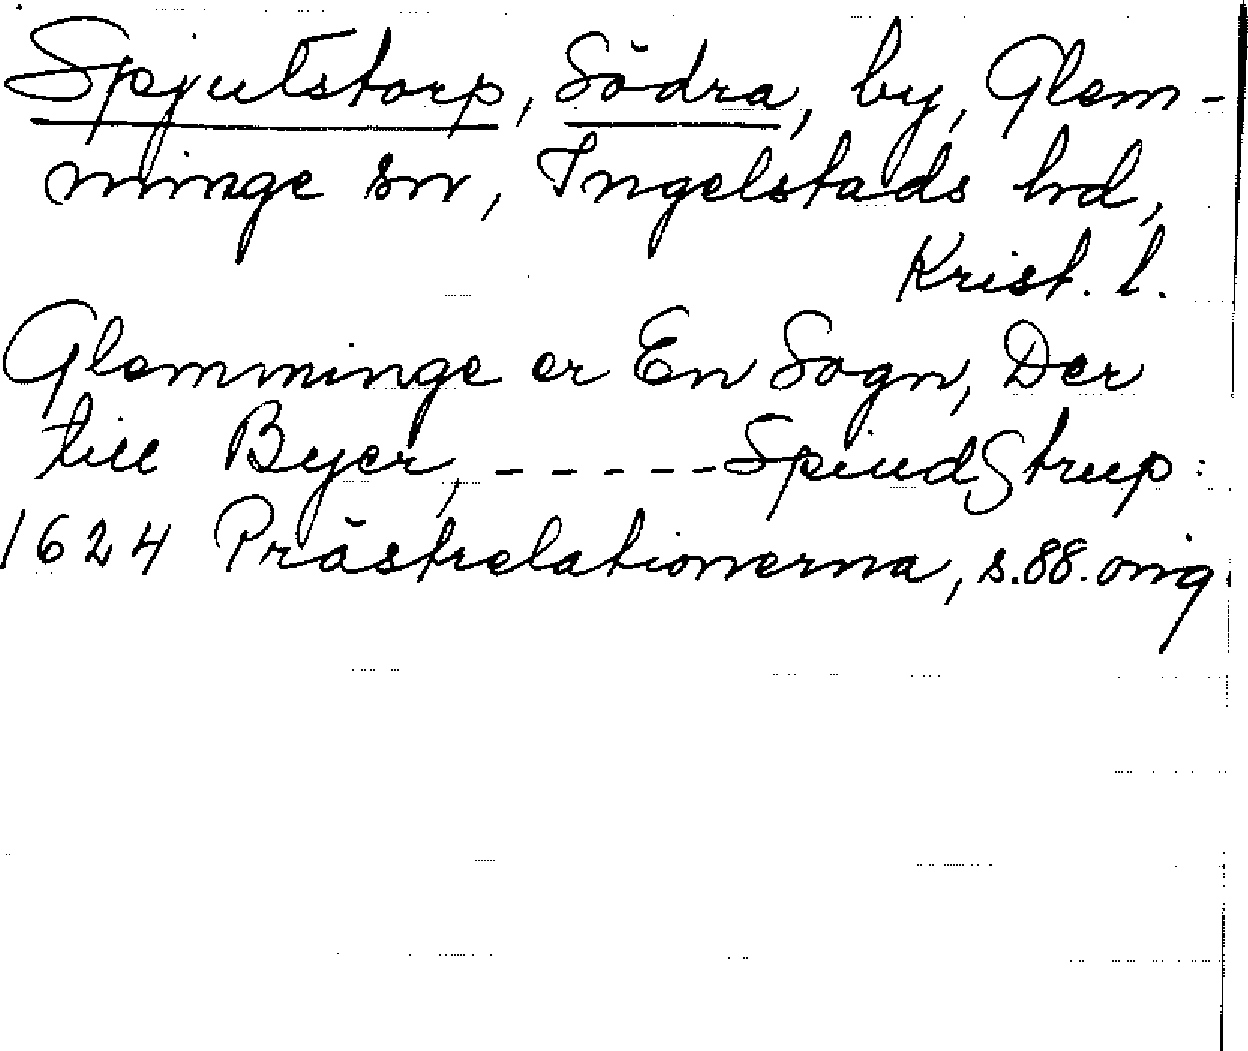 Spjutstorp, Södra, by, Glem-
minge sn, Ingelstads hd,
Krist. l.
Glemminge er En Sogn, Der
till Byer, - - - - - SpiudStrup:
1624 Prästrelationerna, s.88. orig.